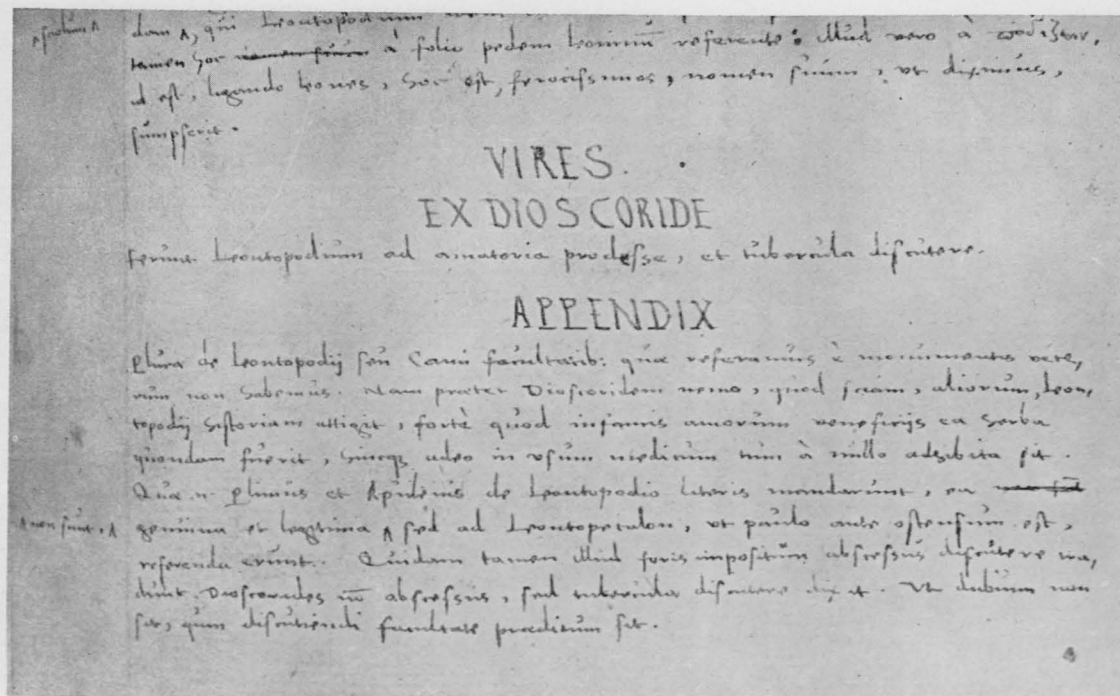 dam ʌ, qui Leontopodium
tamen hoc à folio pedem leoninum referente: illud vero à
id est, ligando leones, hoc est, ferocissimos, nomen suum, ut diximus,
sumpserit.
VIRES.
EX DIOSCORIDE
Ferunt Leontopodium ad amatoria prodesse, et tubercula discutere.
APPENDIX
Plura de Leontopodij seu Cani facultatib: quæ referamus è monumentis vete,
rum non habemus. Nam præter Dioscoridem nemo, quod sciam, aliorum, Leon,
topodij historiam attigit, fortè quòd infamis amorum veneficijs ea herba
quondam fuerit, hincq; adeo in usum medicum tum à nullo adhibita sit.
Quæ n. Plinius et Apuleius de Leontopodio literis mandarunt, ea
ʌ non sunt, ʌ
genuina et legitima ʌ sed ad Leontopetalon, ut paulo ante ostensum est,
referenda erunt. Quidam tamen illud foris impositum abscessus discutere tra,
dunt. Dioscorides nō abscessus, sed tubercula discutere dixit. Ut dubium non
sit, quin discutiendi facultate præditum sit.